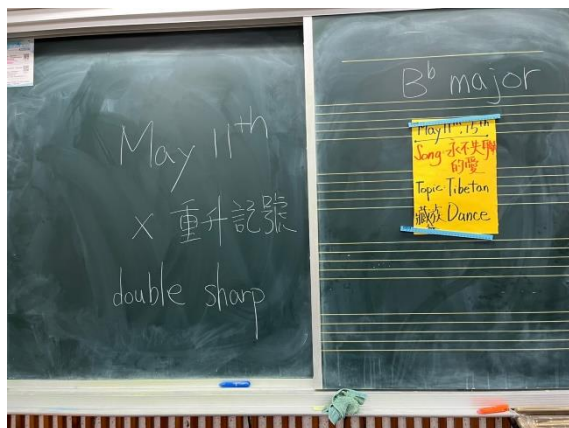 May 11th
x 重升記號
double sharp
Bb major
May 11th.15th
Song.永不失聯
的愛
Topic.Tibetan
藏族 Dance